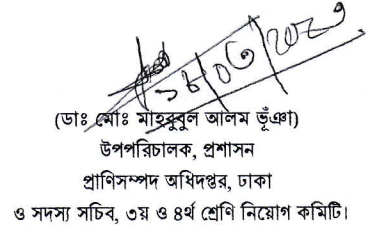 ১৮/০৬/২০২৩
(ডাঃ মোঃ মাহবুবুল আলম ভূঁঞা)
উপপরিচালক, প্রশাসন
প্রাণিসম্পদ অধিদপ্তর, ঢাকা
ও সদস্য সচিব, ৩য় ও ৪র্থ শ্রেণি নিয়োগ কমিটি।